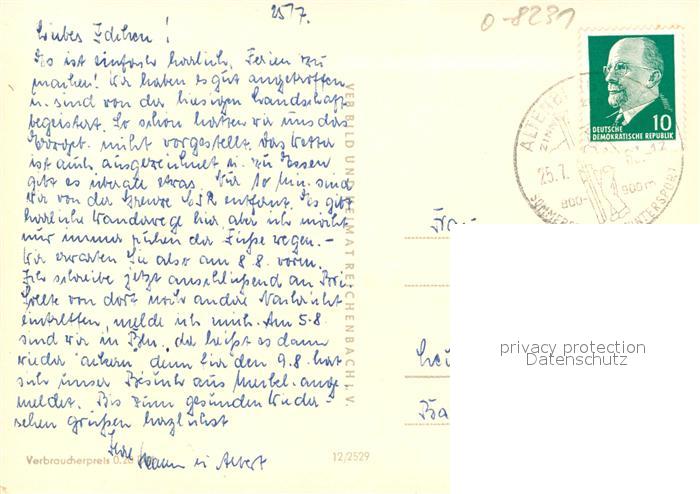 25/7.
0-8231
Liebes Idchen!
Es ist einfach herrlich, Ferien zu
machen! Wir haben es gut angetroffen
u. sind von der hiesigen Landschaft
begeistert. So schön hatten wir uns das
nicht vorgestellt. Das Wetter
ist auch ausgezeichnet u. zu Essen
gibt es überall etwas. Nur 10 Min. sind
wir von der Grenze ČSR entfernt. Es gibt
herrliche Wanderwege hier, aber ich möcht
nur immer ruhen der Füße wegen. -
Wir erwarten Sie also am 8.8. vorm.
Ich schreibe jetzt anschließend an
Sollte von dort noch andre Nachricht
eintreffen, melde ich mich. Am 5.8.
sind wir in Bln, da heißt es dann
wieder "ackern", denn für den 9.8. hat
sich unser Besuch aus ange-
meldet. Bis zum gesunden Wieder-
sehen grüßen herzlichst
Ihre u. Albert
VEB BILD UND HEIMAT REICHENBACH I. V.
Verbraucherpreis 0,20
12/2529
10
DEUTSCHE
DEMOKRATISCHE REPUBLIK
ALTENB
25.7.
-12
800-
900m
SOMMER
WINTERSPORT
Frau
Ba
privacy protection
Datenschutz